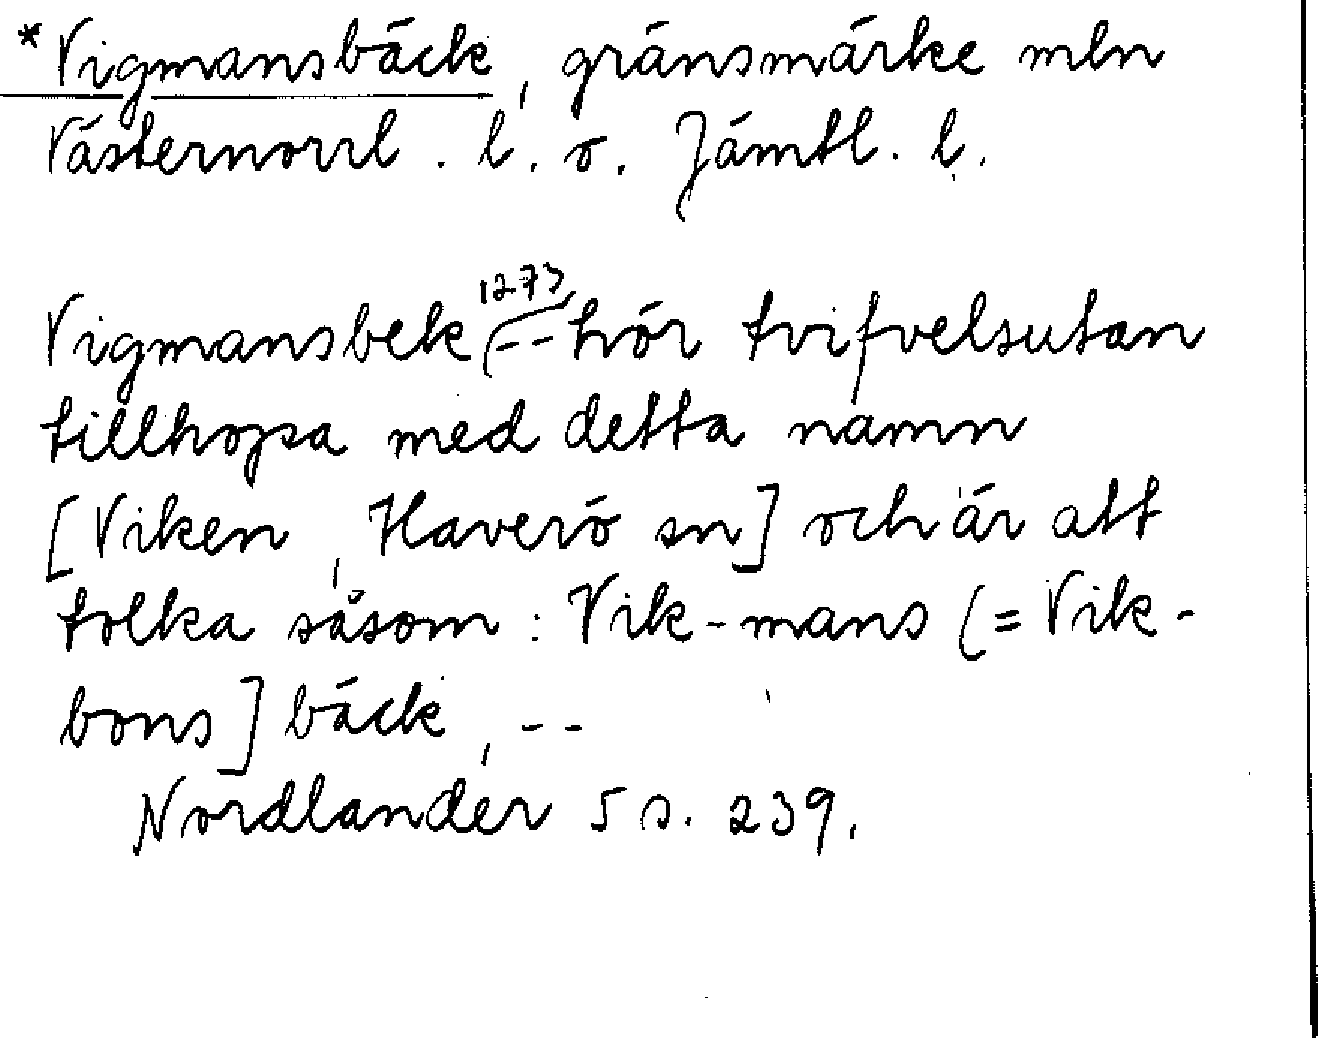 *Vigmansbäck, gränsmärke mln
Västernorrl. l. o. Jämtl. l.
1273
Vigmansbek (-- hör tvifvelsutan
tillhopa med detta namn
[Viken, Haverö sn] och är att
tolka såsom: Vik-mans (= Vik-
bons] bäck, --
Nordlander 5 s. 239.